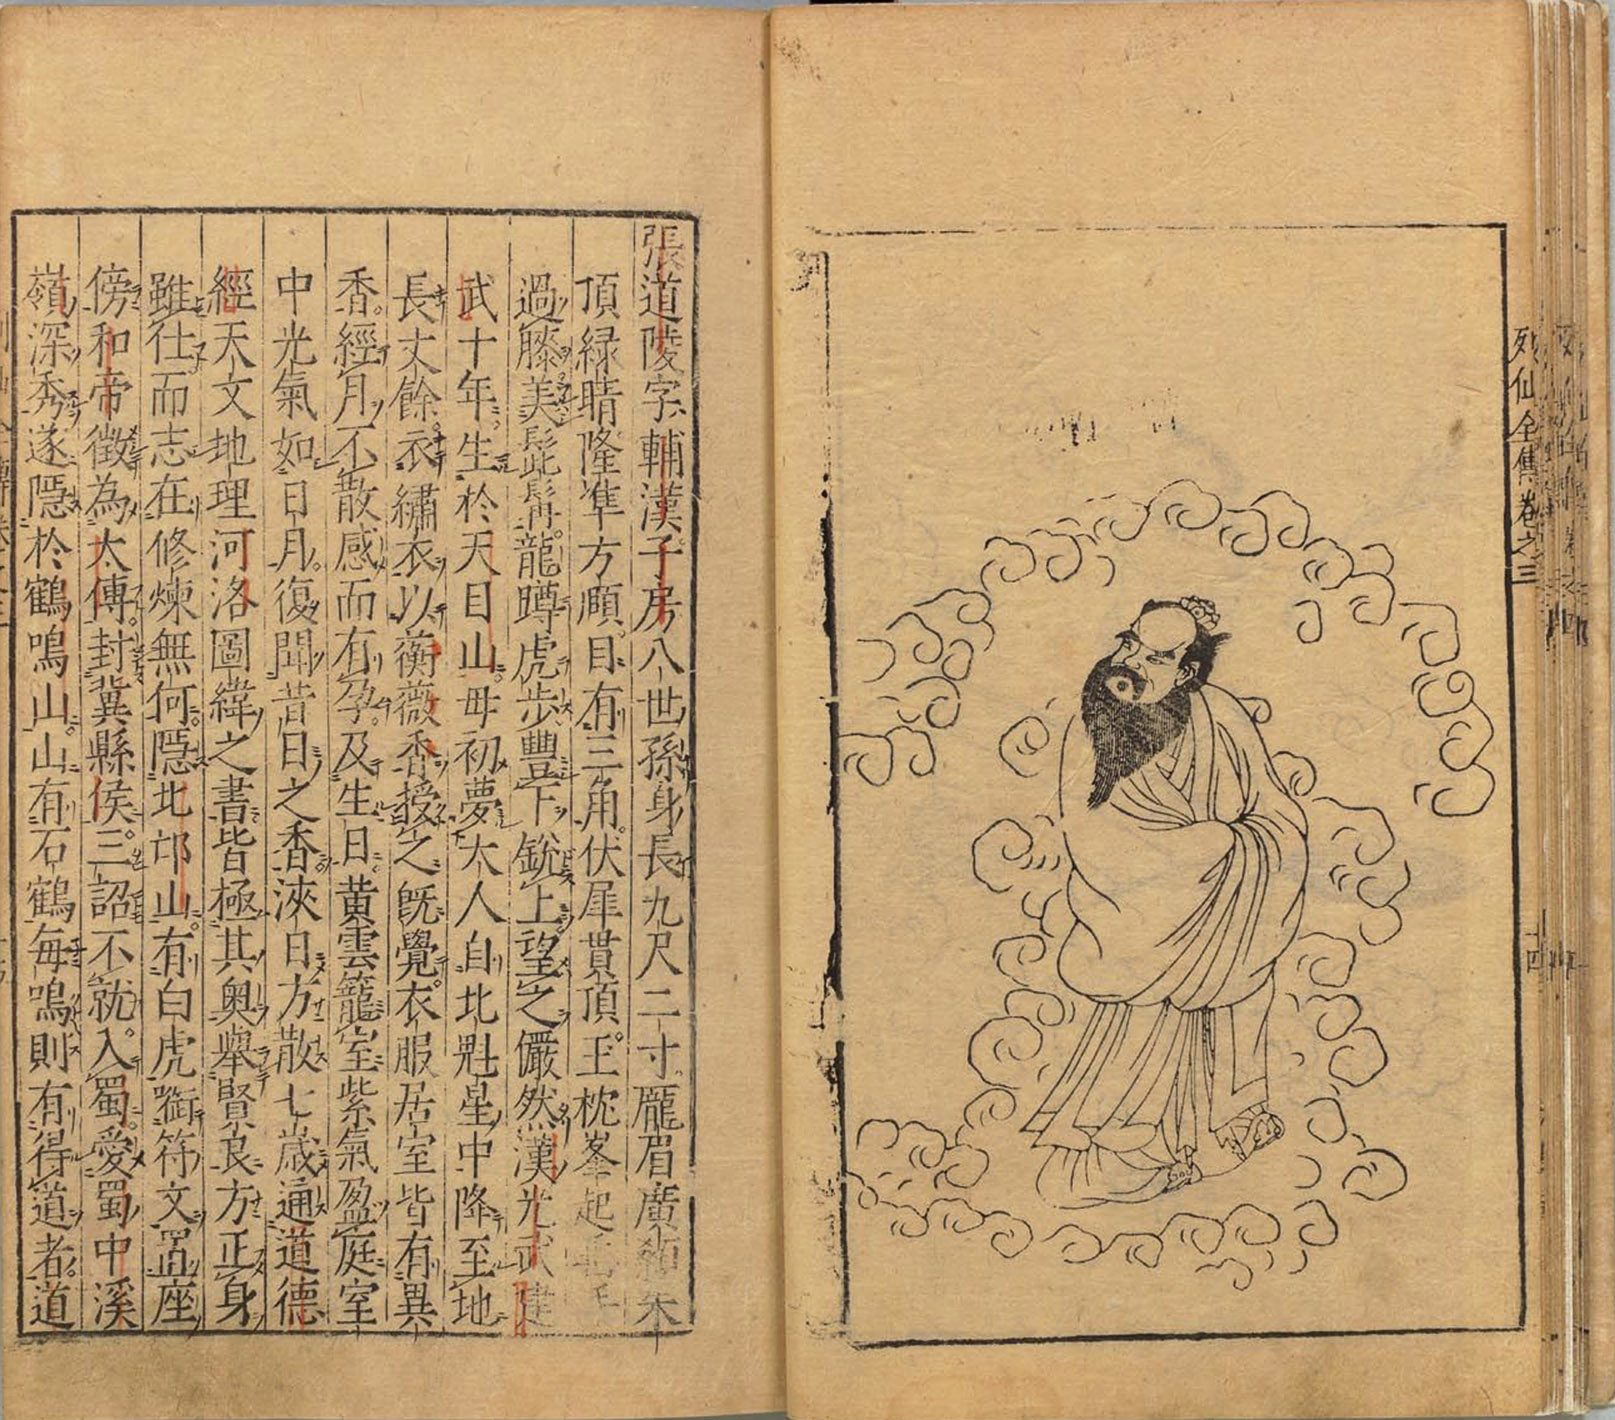 列仙全傳卷之三
十四
張道陵字輔漢子房八世孫身長九尺二寸龐眉廣顙朱
頂緑睛隆準方頤目有三角伏犀貫頂玉枕峯起垂手
過膝美髭髯龍蹲虎步豐下銳上望之儼然漢光武建
武十年生於天目山母初夢大人自北魁星中降至地
長丈餘衣繡衣以蘅薇香授之既覺衣服居室皆有異
香經月不散感而有孕及生日黄雲籠室紫氣盈庭室
中光氣如日月復聞昔日之香浹日方散七歲通道德
經天文地理河洛圖緯之書皆極其奥舉賢良方正身
雖仕而志在修煉無何隱北邙山有白虎銜符文置座
傍和帝徵為太傅封冀縣侯三詔不就入蜀愛蜀中溪
嶺深秀遂隱於鶴鳴山山有石鶴每鳴則有得道者道